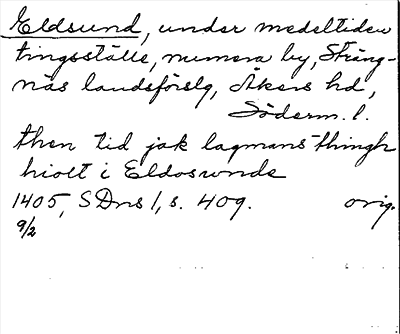 Eldsund, under medeltiden
tingsställe, numera by, Sträng-
näs landsförslg, Åkers hd,
Söderm. l.
then tid jak lagmans thingh
hiolt i Eldoswnde
1405, SDns 1, s. 409. orig.
9/2